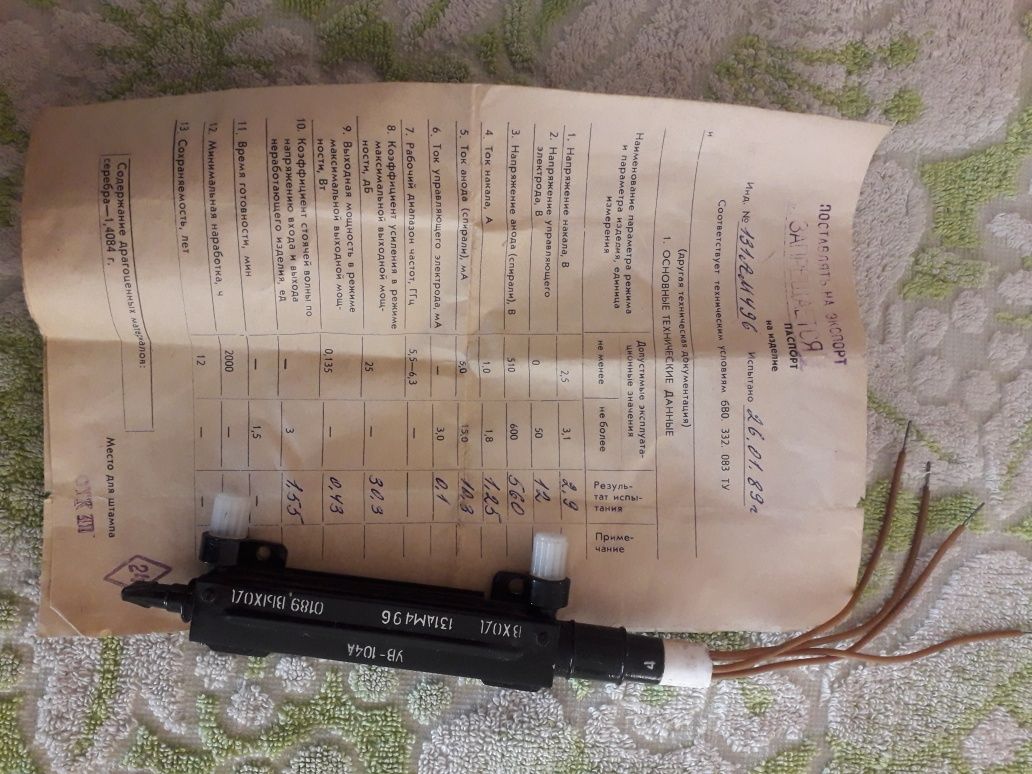 ПОСТАВЛЯТЬ НА ЭКСПОРТ
ЗАПРЕЩАЕТСЯ
ПАСПОРТ
на изделие
Инд. № 131АМ496 Испытано 26.01.89г
Соответствует техническим условиям 6В0. 332. 083 ТУ
и
(другая техническая документация)
1. ОСНОВНЫЕ ТЕХНИЧЕСКИЕ ДАННЫЕ
Наименование параметра режима и параметра изделия, единица измерения
Допустимые эксплуатационные значения
не менее
не более
Результат испытания
Примечание
1. Напряжение накала, В 2,5 3,1 2,9
2. Напряжение управляющего
электрода, В 0 50 12
3. Напряжение анода (спирали), В 510 600 560
4. Ток накала, А 1,0 1,8 1,25
5. Ток анода (спирали), мА 5,0 15,0 10,3
6. Ток управляющего электрода, мА — 3,0 0,1
7. Рабочий диапазон частот, ГГц 5,5—6,3 —
8. Коэффициент усиления в режиме
максимальной выходной мощ-
ности, дБ 25 — 30,3
9. Выходная мощность в режиме
максимальной выходной мощ-
ности, Вт 0,135 — 0,43
10. Коэффициент стоячей волны по
напряжению входа и выхода
неработающего изделия, ед — 3 1.55
11. Время готовности, мин — 1,5 —
12. Минимальная наработка, ч 2000 — —
13. Сохраняемость, лет 12 — —
Содержание драгоценных материалов:
серебра—1,4084 г.
Место для штампа
ОТК
ВХОД
131АМ496
0189 ВЫХОД
УВ-104А
4